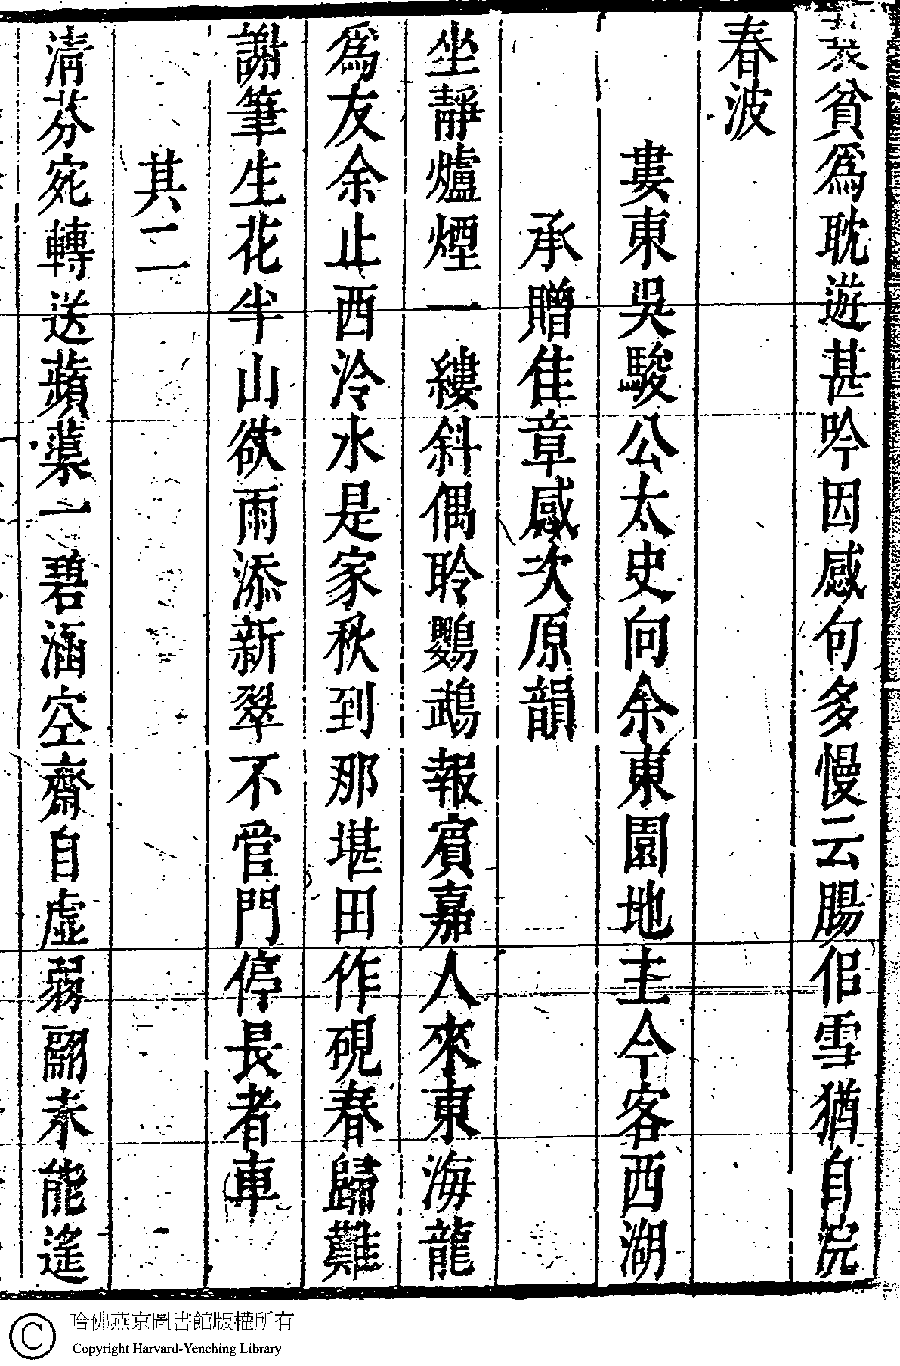 裘貧爲耽遊甚吟因感句多慢云腸佀雪猶自浣
春波
婁東吳駿公太史向余東園地主今客西湖
承贈佳章感次原韻
坐靜爐煙一縷斜偶聆鸚鵡報賓嘉人來東海龍
爲友余止西泠水是家秋到那堪田作硯春歸難
謝筆生花半山欲雨添新翠不管門停長者車
其二
清芬宛轉送蘋蘩一碧涵空齋自虛弱翮未能遙
哈佛燕京圖書館版權所有
© Copyright Harvard-Yenching Library